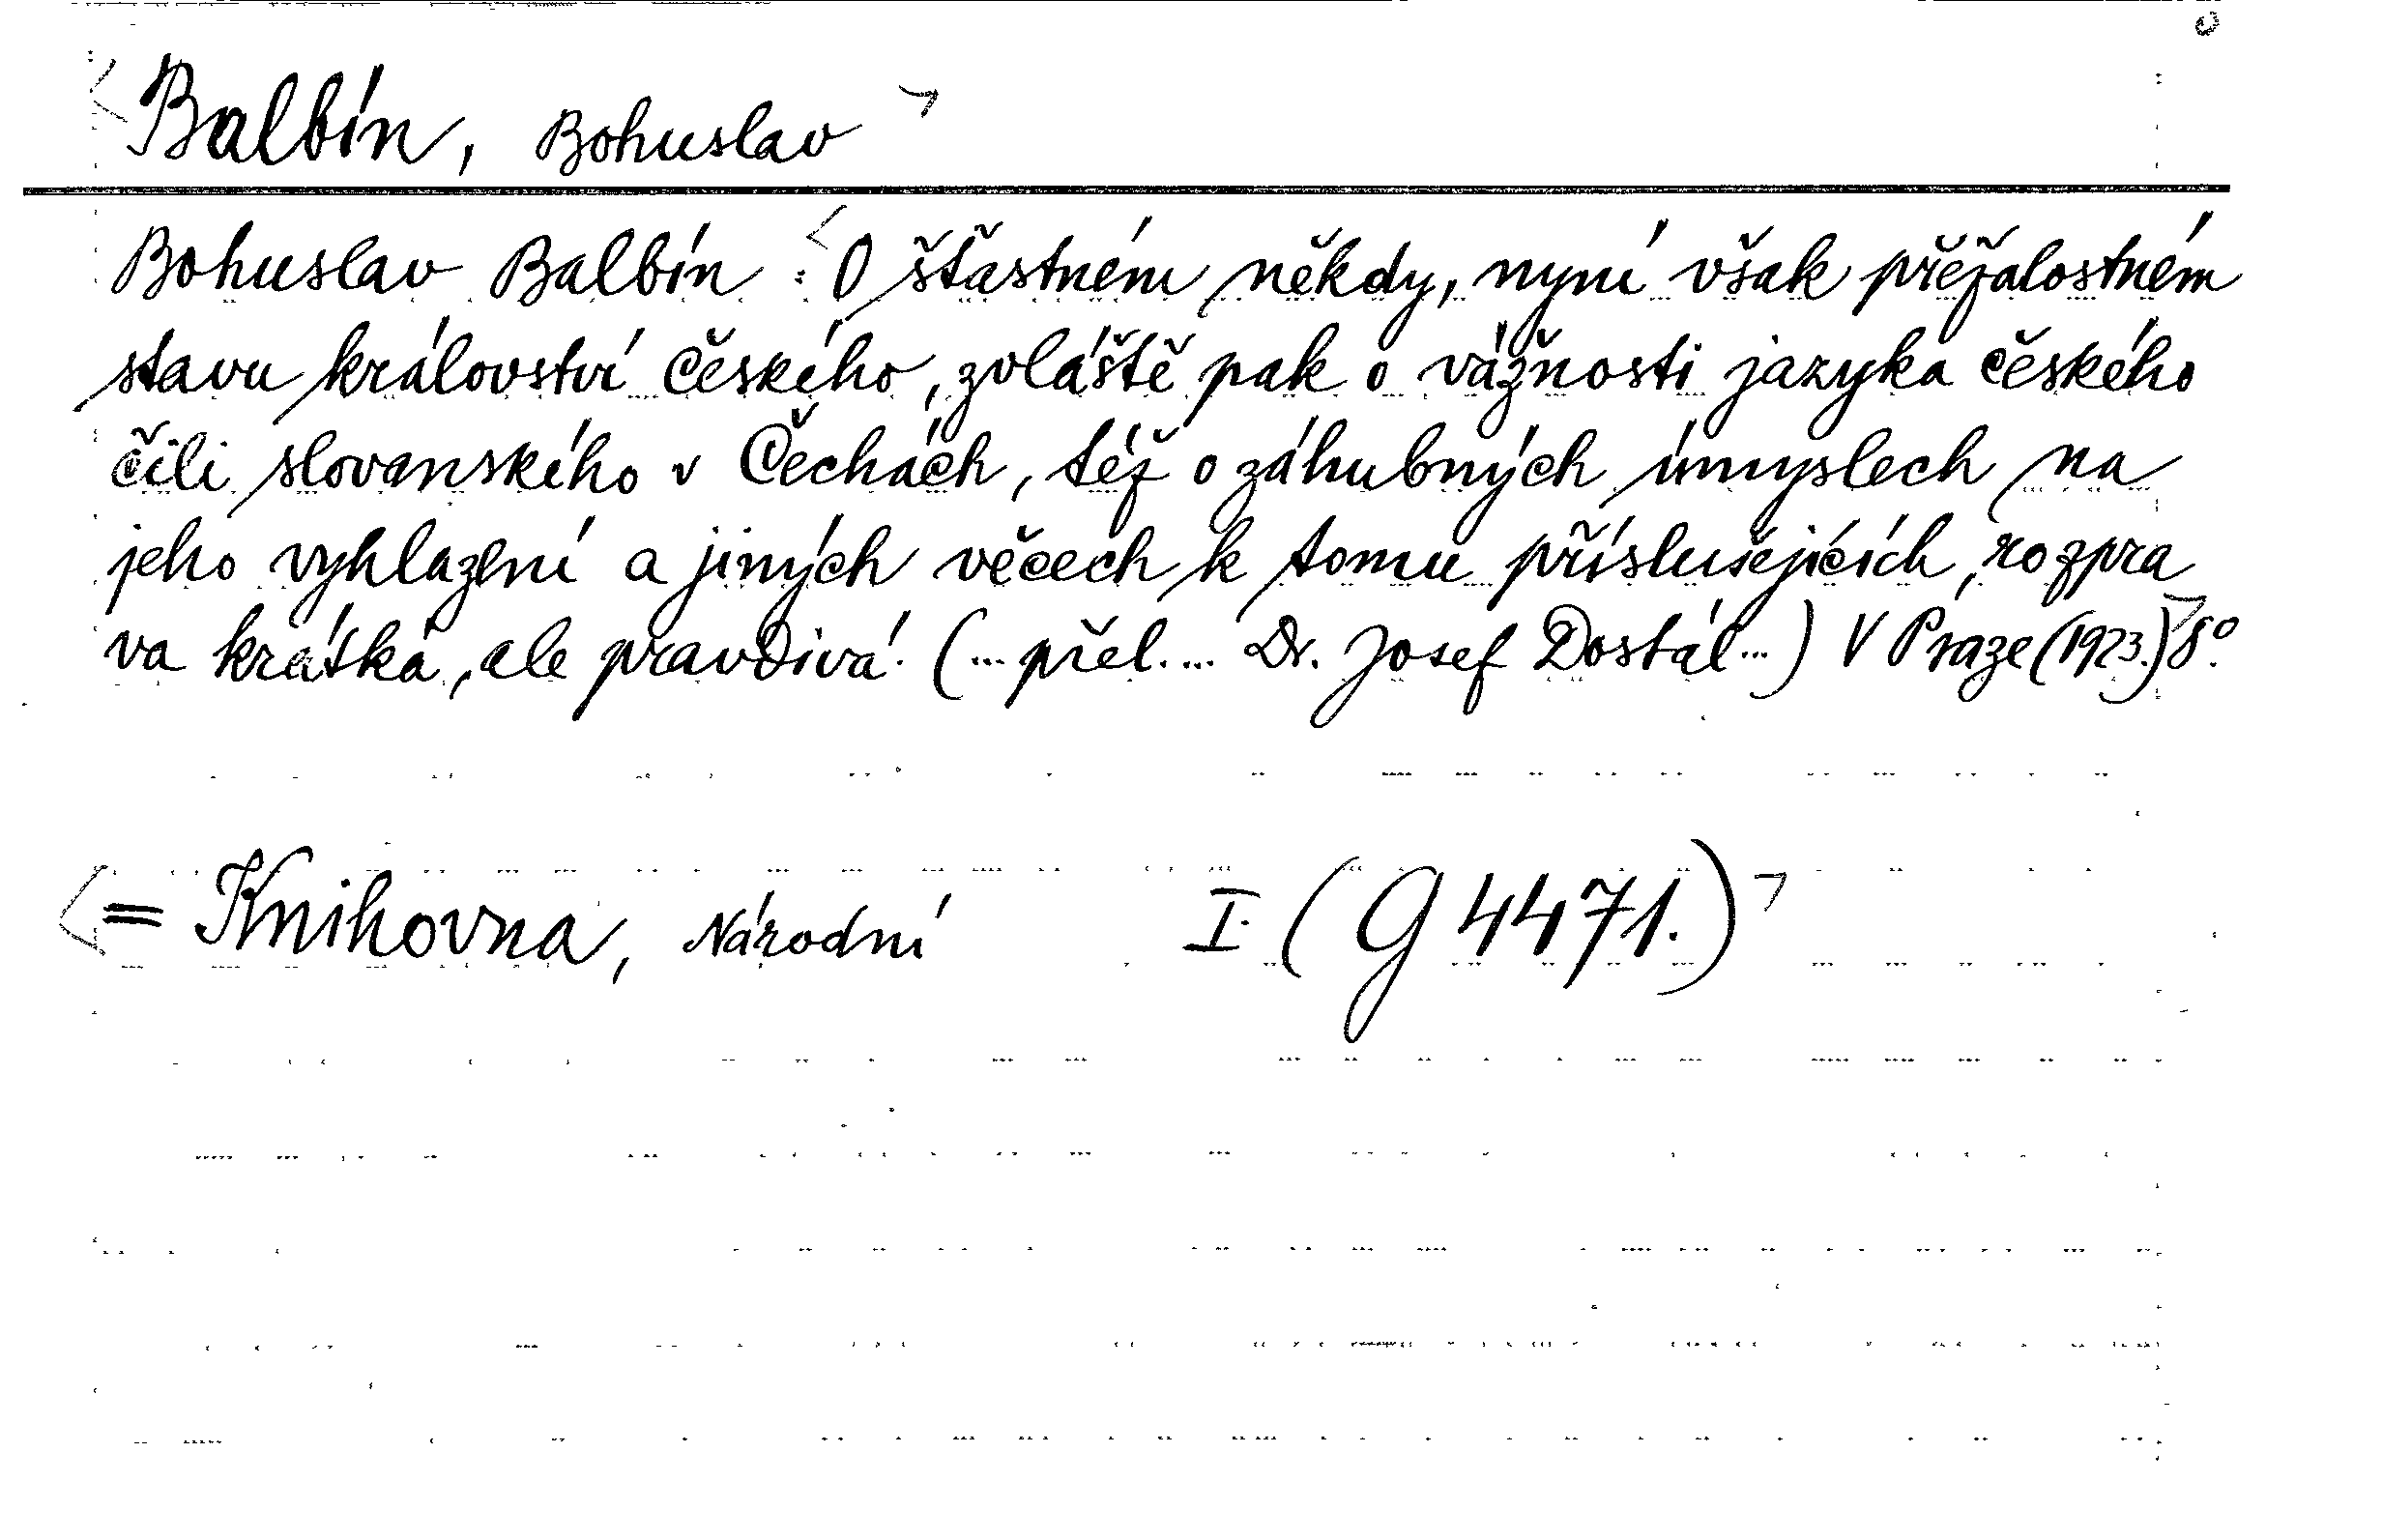 Balbín, Bohuslav
Bohuslav Balbín : O šťastném někdy, nyní však přežalostném
stavu království českého, zvláště pak o vážnosti jazyka českého
čili slovanského v Čechách, též o záhubných úmyslech na
jeho vyhlazení a jiných věcech k tomu příslušejících, rozpra
va krátká, ale pravdivá. (... přel. ... Dr. Josef Dostál ...) V Praze (1923.) 8°.
= Knihovna, Národní I. (G 4471.)